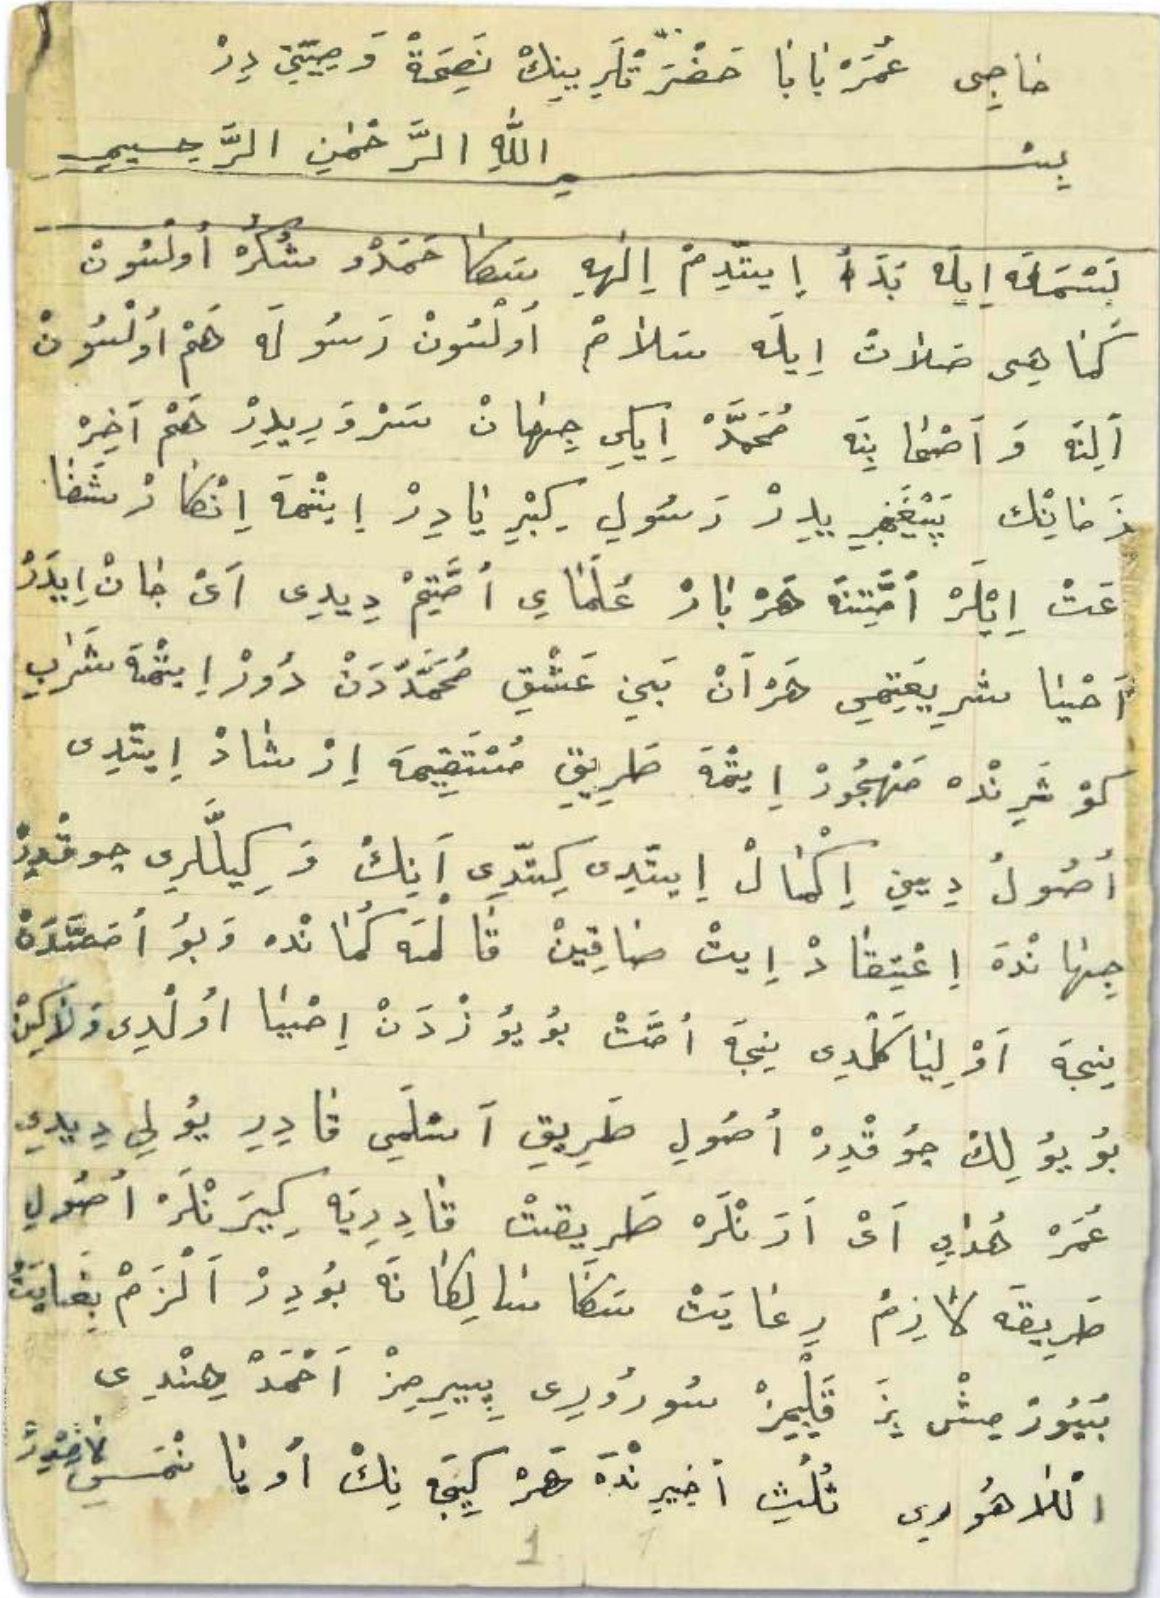 حاجى عُمَرْ بَابَا حَضْرَتْلَرِينِكْ نَصِحَةْ وَصِيَّتِى دِرْ
بِسْمِ اللّٰهِ الرَّحْمٰنِ الرَّحِيمِ
بَسْمَلَه اِيلَه بَدَأْ اِيتّدِمْ اِلٰهِ سَكَا حَمَدُو شُكُرْ اُولْسُونْ
كَمَا هِى صَلَاتْ اِيلَه سَلَامْ اُولْسُونْ رَسُولَه هَمْ اُولْسُونْ
اَلِنَه وَ اَصْحَابِنَه مُحَمَّدْ اِيكِى جِهَانْ سَرْوَرِيدِرْ هَمْ اَخِرْ
زَمَانِنْكْ پَيْغَمْبَرِيدِرْ رَسُولِ كِبْرِيَادِرْ اِيتْمَه اِنْكَارْ شَفَا
عَتْ اِيْلَرْ اُمَّتِنَه هَرْ بَارْ عُلَمَاىِ اُمَّتِمْ دِيدِى اَىْ جَانْ اِيدَرْ
اَحْيَا شَرِيعَتِمِى هَرْ اَنْ بَنِى عَشْقِ مُحَمَّدْدَنْ دُورْ اِيتْمَه شَرَابِ
كَوْثَرِنْدَه مَهْجُورْ اِيتْمَه طَرِيقِ مُسْتَقِيمَه اِرْشَادْ اِيتّدِى
اُصُولُ دِينِى اِكْمَالْ اِيتّدِى كِتّدِى اَنِكْ وَكِيلَّرِى چوقْدِرْ
جِهَانْدَه اِعْتِقَادْ اِيتْ صَاقِينْ قَالْمَه كُمَانْدَه وَبُو اُمَّتْدَنْ
نِيجَه اَوْلِيَا كَلْدِى نِيجَه اُمَّتْ بُو يُوزْدَنْ اِحْيَا اُولْدِى وَلَاكِينْ
بُو يُولِكْ چُوقْدِرْ اُصُولِ طَرِيقِ اَسْلَمِى قَادِرِ يُولِى دِيدِى
عُمَرْ هُدَايِى اَىْ اَرَنْلَرْ طَرِيقَتْ قَادِرِيَه كِيرَنْلَرْ اُصُولِ
طَرِيقَه لَازِمْ رِعَايَتْ سَكَا سَالِكَانَه بُودِرْ اَلْزَمْ بِغَايَتْ
بُيُورْمِشْ بِزَ قَلْبِمِزْ سُورُورِى پِيرِمِزْ اَحْمَدْ هِنْدِى
اللَاهُورِى ثُلُثِ اَخِيرِنْدَه هَرْ كِيجَه نِكْ اُويَانْمَسِى لَازِمْدِرْ
1